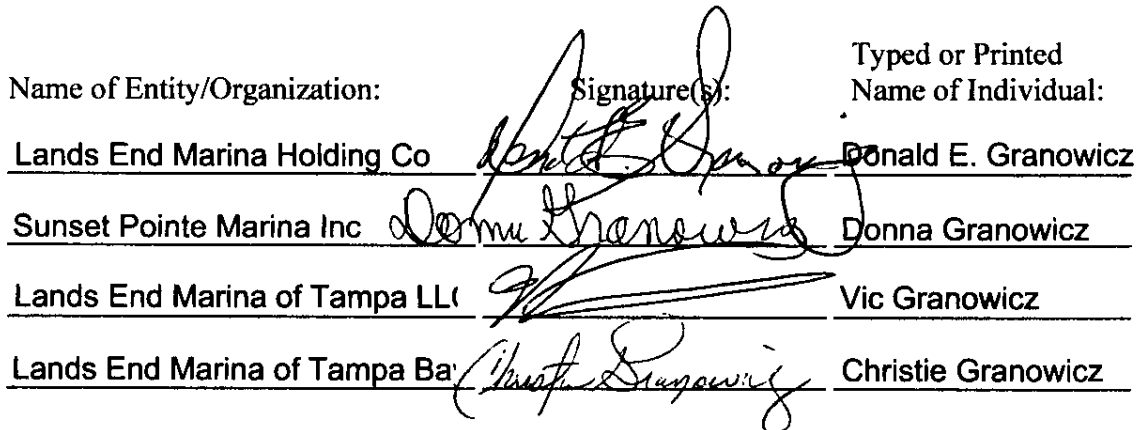 Typed or Printed
Name of Entity/Organization: Signature(s): Name of Individual:
Lands End Marina Holding Co Donald E. Granowicz
Sunset Pointe Marina Inc Donna Granowicz Donna Granowicz
Lands End Marina of Tampa LL Vic Granowicz
Lands End Marina of Tampa Ba Christie Granowicz